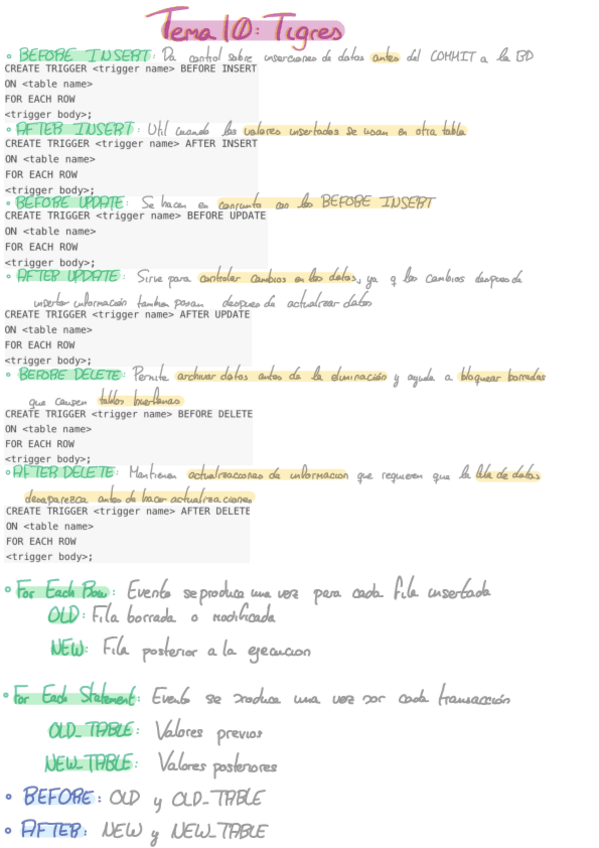 Tema 10: Tigres
• BEFORE INSERT: Da control sobre inserciones de datos antes del COMMIT a la BD
CREATE TRIGGER <trigger name> BEFORE INSERT
ON <table name>
FOR EACH ROW
<trigger body>;
• AFTER INSERT: Util cuando los valores insertados se usan en otra tabla
CREATE TRIGGER <trigger name> AFTER INSERT
ON <table name>
FOR EACH ROW
<trigger body>;
• BEFORE UPDATE: Se hacen en conjunto con los BEFORE INSERT
CREATE TRIGGER <trigger name> BEFORE UPDATE
ON <table name>
FOR EACH ROW
<trigger body>;
• AFTER UPDATE: Sirve para controlar cambios en los datos, ya q los cambios despues de
insertar informacion tambien pasan despues de actualizar datos
CREATE TRIGGER <trigger name> AFTER UPDATE
ON <table name>
FOR EACH ROW
<trigger body>;
• BEFORE DELETE: Permite archivar datos antes de la eliminación y ayuda a bloquear borrados
que causen tablas huerfanas
CREATE TRIGGER <trigger name> BEFORE DELETE
ON <table name>
FOR EACH ROW
<trigger body>;
• AFTER DELETE: Mantienen actualizaciones de informacion que requieren que la fila de datos
desaparezca antes de hacer actualizaciones
CREATE TRIGGER <trigger name> AFTER DELETE
ON <table name>
FOR EACH ROW
<trigger body>;
• For Each Row: Evento se produce una vez para cada fila insertada
OLD: Fila borrada o modificada
NEW: Fila posterior a la ejecucion
• For Each Statement: Evento se produce una vez por cada transacción
OLD_TABLE: Valores previos
NEW_TABLE: Valores posteriores
• BEFORE: OLD y OLD_TABLE
• AFTER: NEW y NEW_TABLE